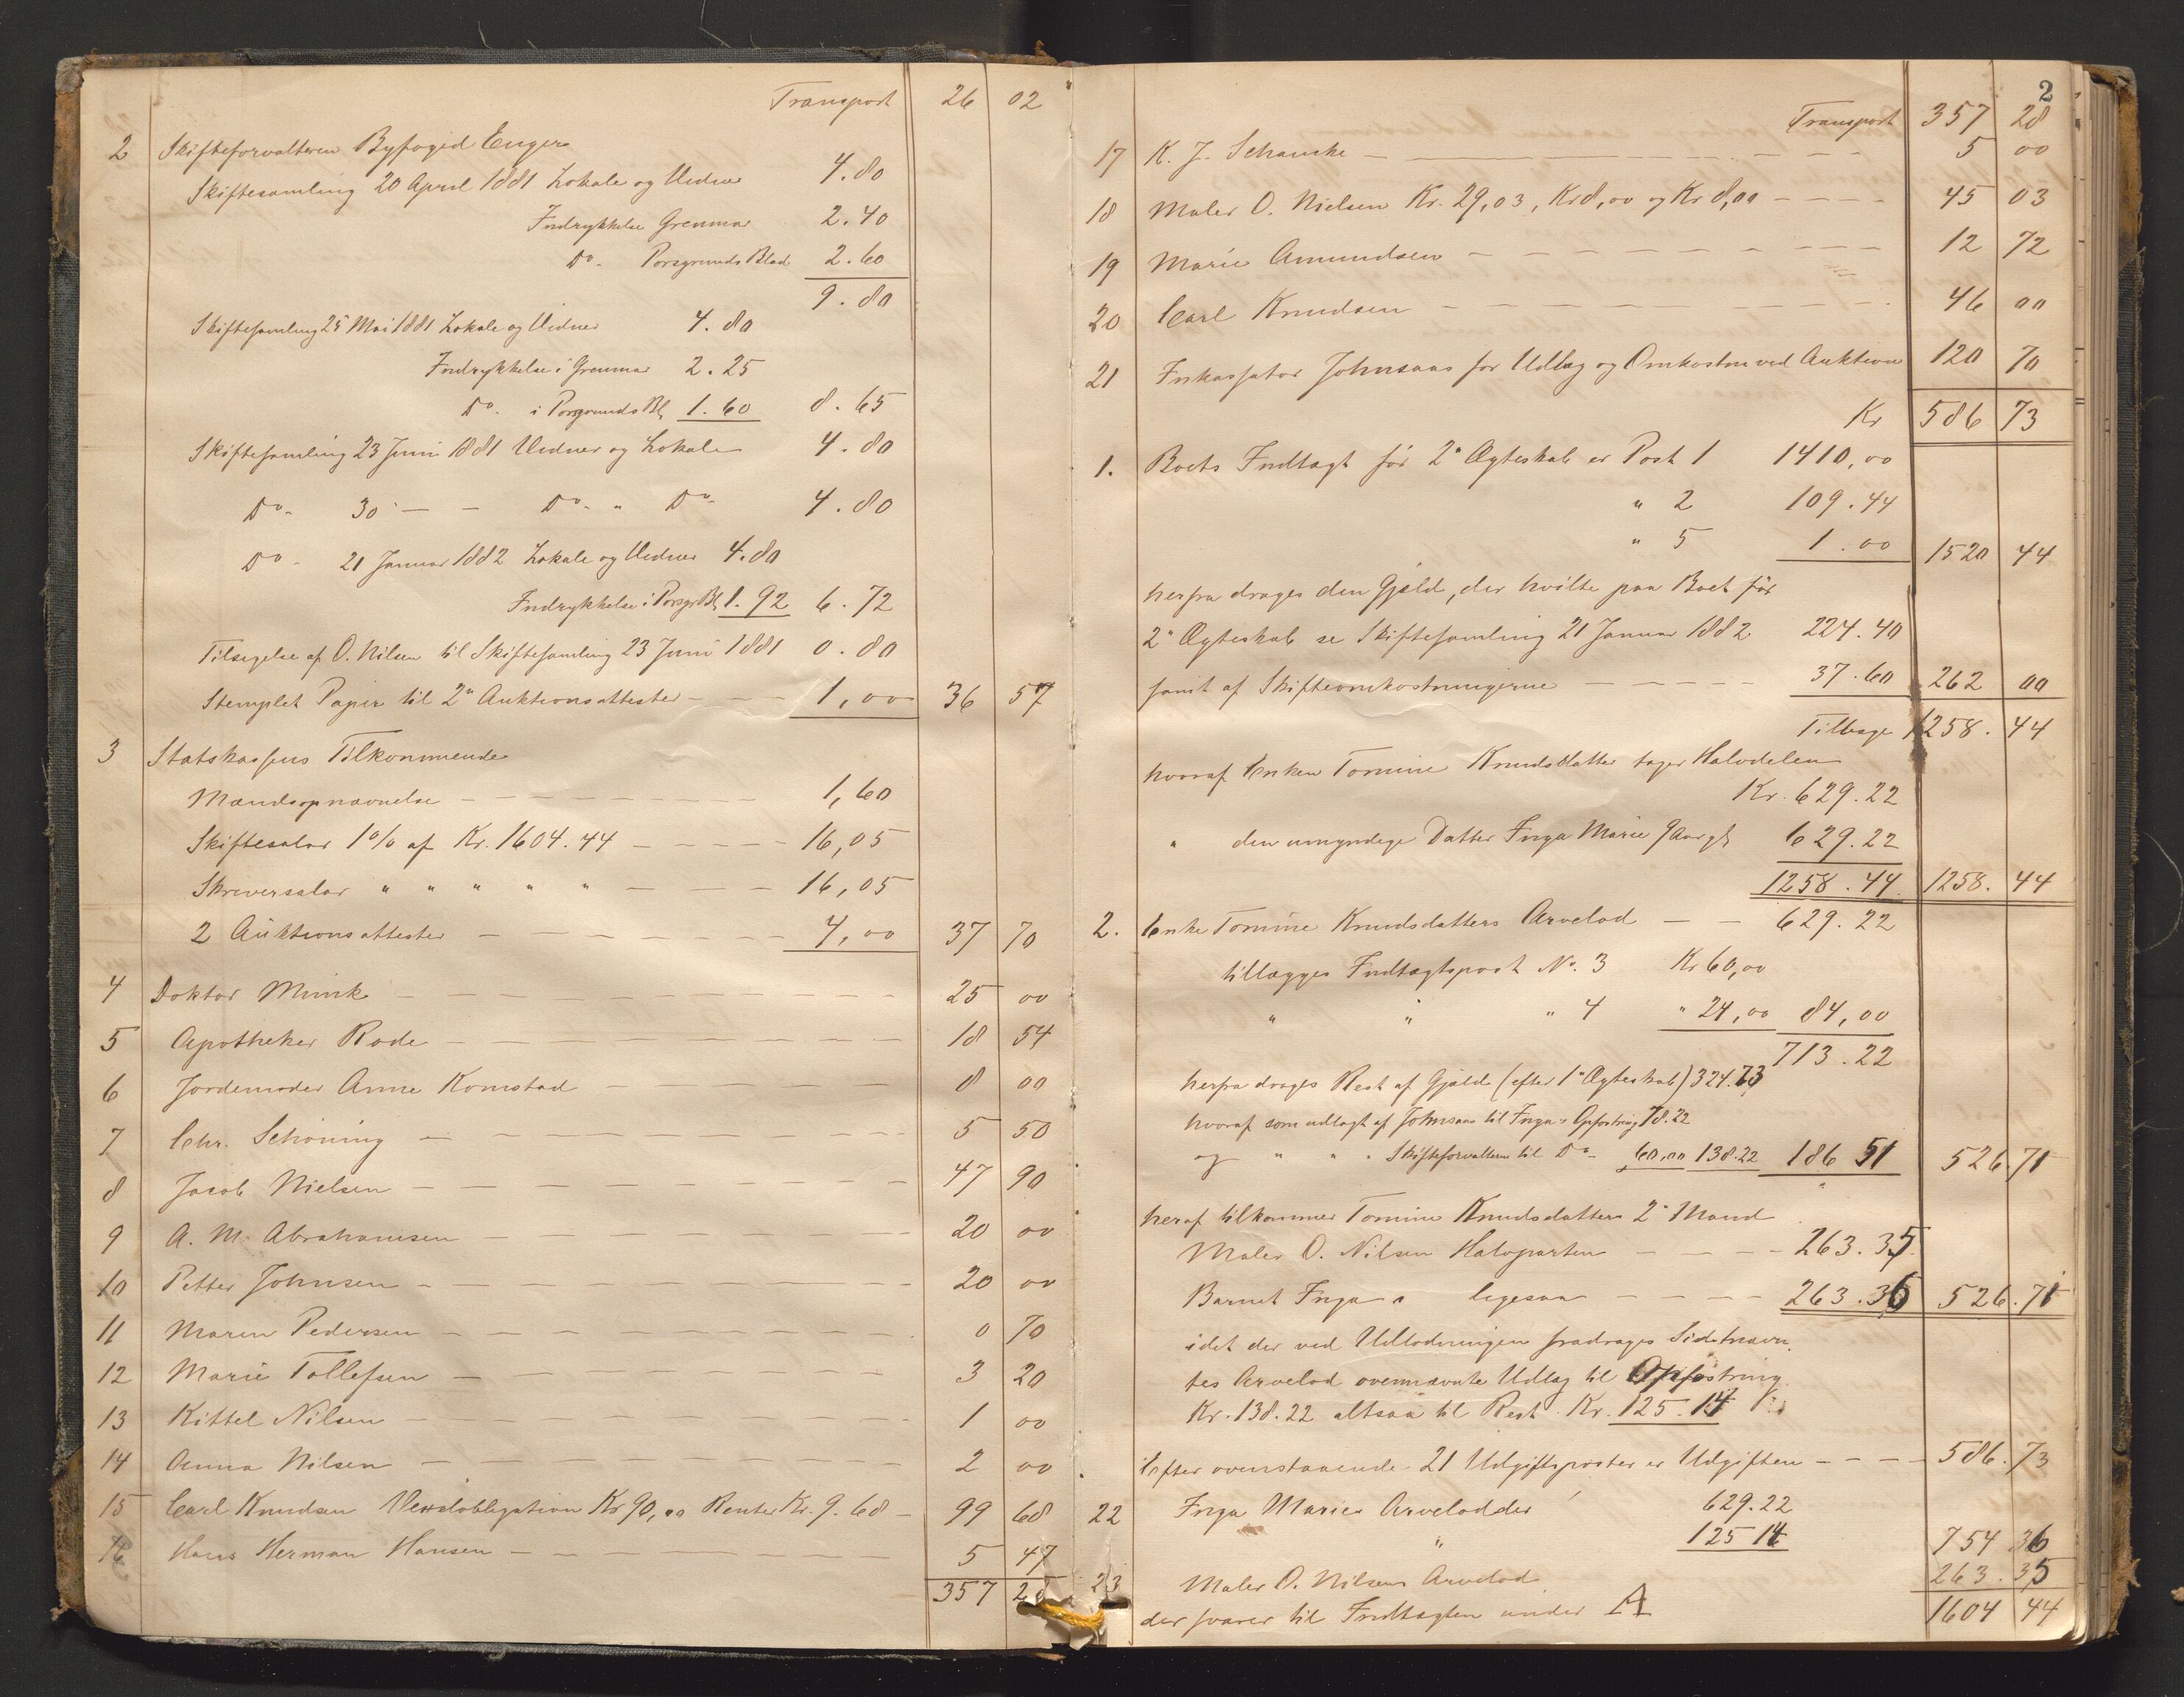 Transport 26 02
2 Skifteforvalteren Byfoged Enger
Skiftesamling 20 April 1881 Lokale og Vidner 4.80
Indrykkelse Grenmar 2.40
Do. Porsgrunds Blad 2.60
9.80
Skiftesamling 25 Mai 1881 Lokale og Vidner 4.80
Indrykkelse i Grenmar 2.25
Do. i Porsgrunds Bl 1.60 8.65
Skiftesamling 23 Juni 1881 Vidner og Lokale 4.80
Do. 30 — — Do. " Do. 4.80
Do. 21 Januar 1882 Lokale og Vidner 4.80
Indrykkelse i Porsgr Bl 1.92 6.72
Tilsigelse af O. Nilsen til Skiftesamling 23 Juni 1881 0.80
Stemplet Papir til 2de Auktionsattester — — 1,00 36 57
3 Statskassens Tilkommende
Mændsopnævnelse — — — 1,60
Skiftesalar 1% af Kr. 1604.44 — — — 16,05
Skriversalar " " " " " — — — 16,05
2 Auktionsattester — — — 4,00 37 70
4 Doktor Munk — — — 25 00
5 Apotheker Rode — — — 18 54
6 Jordemoder Anne Komstad — — — 8 00
7 Chr. Schöning — — — 5 50
8 Jacob Nielsen — — — 47 90
9 A. M. Abrahamsen — — — 20 00
10 Petter Johnsen — — — 20 00
11 Maren Pedersen — — — 0 70
12 Marie Tollefsen — — — 3 20
13 Kittel Nilsen — — — 1 00
14 Anna Nilsen — — — 2 00
15 Carl Knudsen Vexelobligation Kr 90,00 Renter Kr. 9.68 — 99 68
16 Hans Herman Hansen — — — 5 47
357 28
2
Transport 357 28
17 K. J. Schanche — — — 5 00
18 Maler O. Nielsen Kr. 29,03, Kr 8,00 og Kr 8,00 — — — 45 03
19 Marie Amundsen — — — 12 72
20 Carl Knudsen — — — 46 00
21 Inkassator Johnsaas for Udlæg og Omkostn ved Auktion 120 70
Kr 586 73
1. Boets Indtægt før 2t Ægteskab er Post 1 1410,00
" 2 109.44
" 5 1.00 1520 44
herfra drages den Gjæld, der hvilte paa Boet før
2t Ægteskab se Skiftesamling 21 Januar 1882 224.40
samt af Skifteomkostningerne — — — 37.60 262 00
Tilbage 1258.44
hvoraf Enken Tomine Knudsdatter tager Halvdelen
Kr. 629.22
" den umyndige Datter Inga Marie 629.22
1258.44 1258.44
2. Enke Tomine Knudsdatters Arvelod — — 629.22
tillægges Indtægtspost No. 3 Kr 60,00
" " " 4 " 24,00 84,00
713.22
herfra drages Rest af Gjæld (efter 1t Ægteskab) 324.73
hvoraf som udlagt af Johnsaas til Ingas Opfostring 78.22
og " " " Skifteforvalteren til Do. 60,00 138.22 186 51 526.71
heraf tilkommer Tomine Knudsdatters 2n Mand
Maler O. Nilsen Halvparten — — — 263.35
Barnet Inga ligesaa — — — 263.36 526.71
idet der ved Udlodningen fradrages Sidstnævn
tes Arvelod ovennævnte Udlæg til Opfostring
Kr. 138.22 altsaa til Rest Kr. 125.14
Efter ovenstaaende 21 Udgiftsposter er Udgiften — — — 586.73
22 Inga Maries Arvelodder 629.22
" 125 14 754 36
23 Maler O. Nilsens Arvelod 263.35
der svarer til Indtægten under A 1604 44